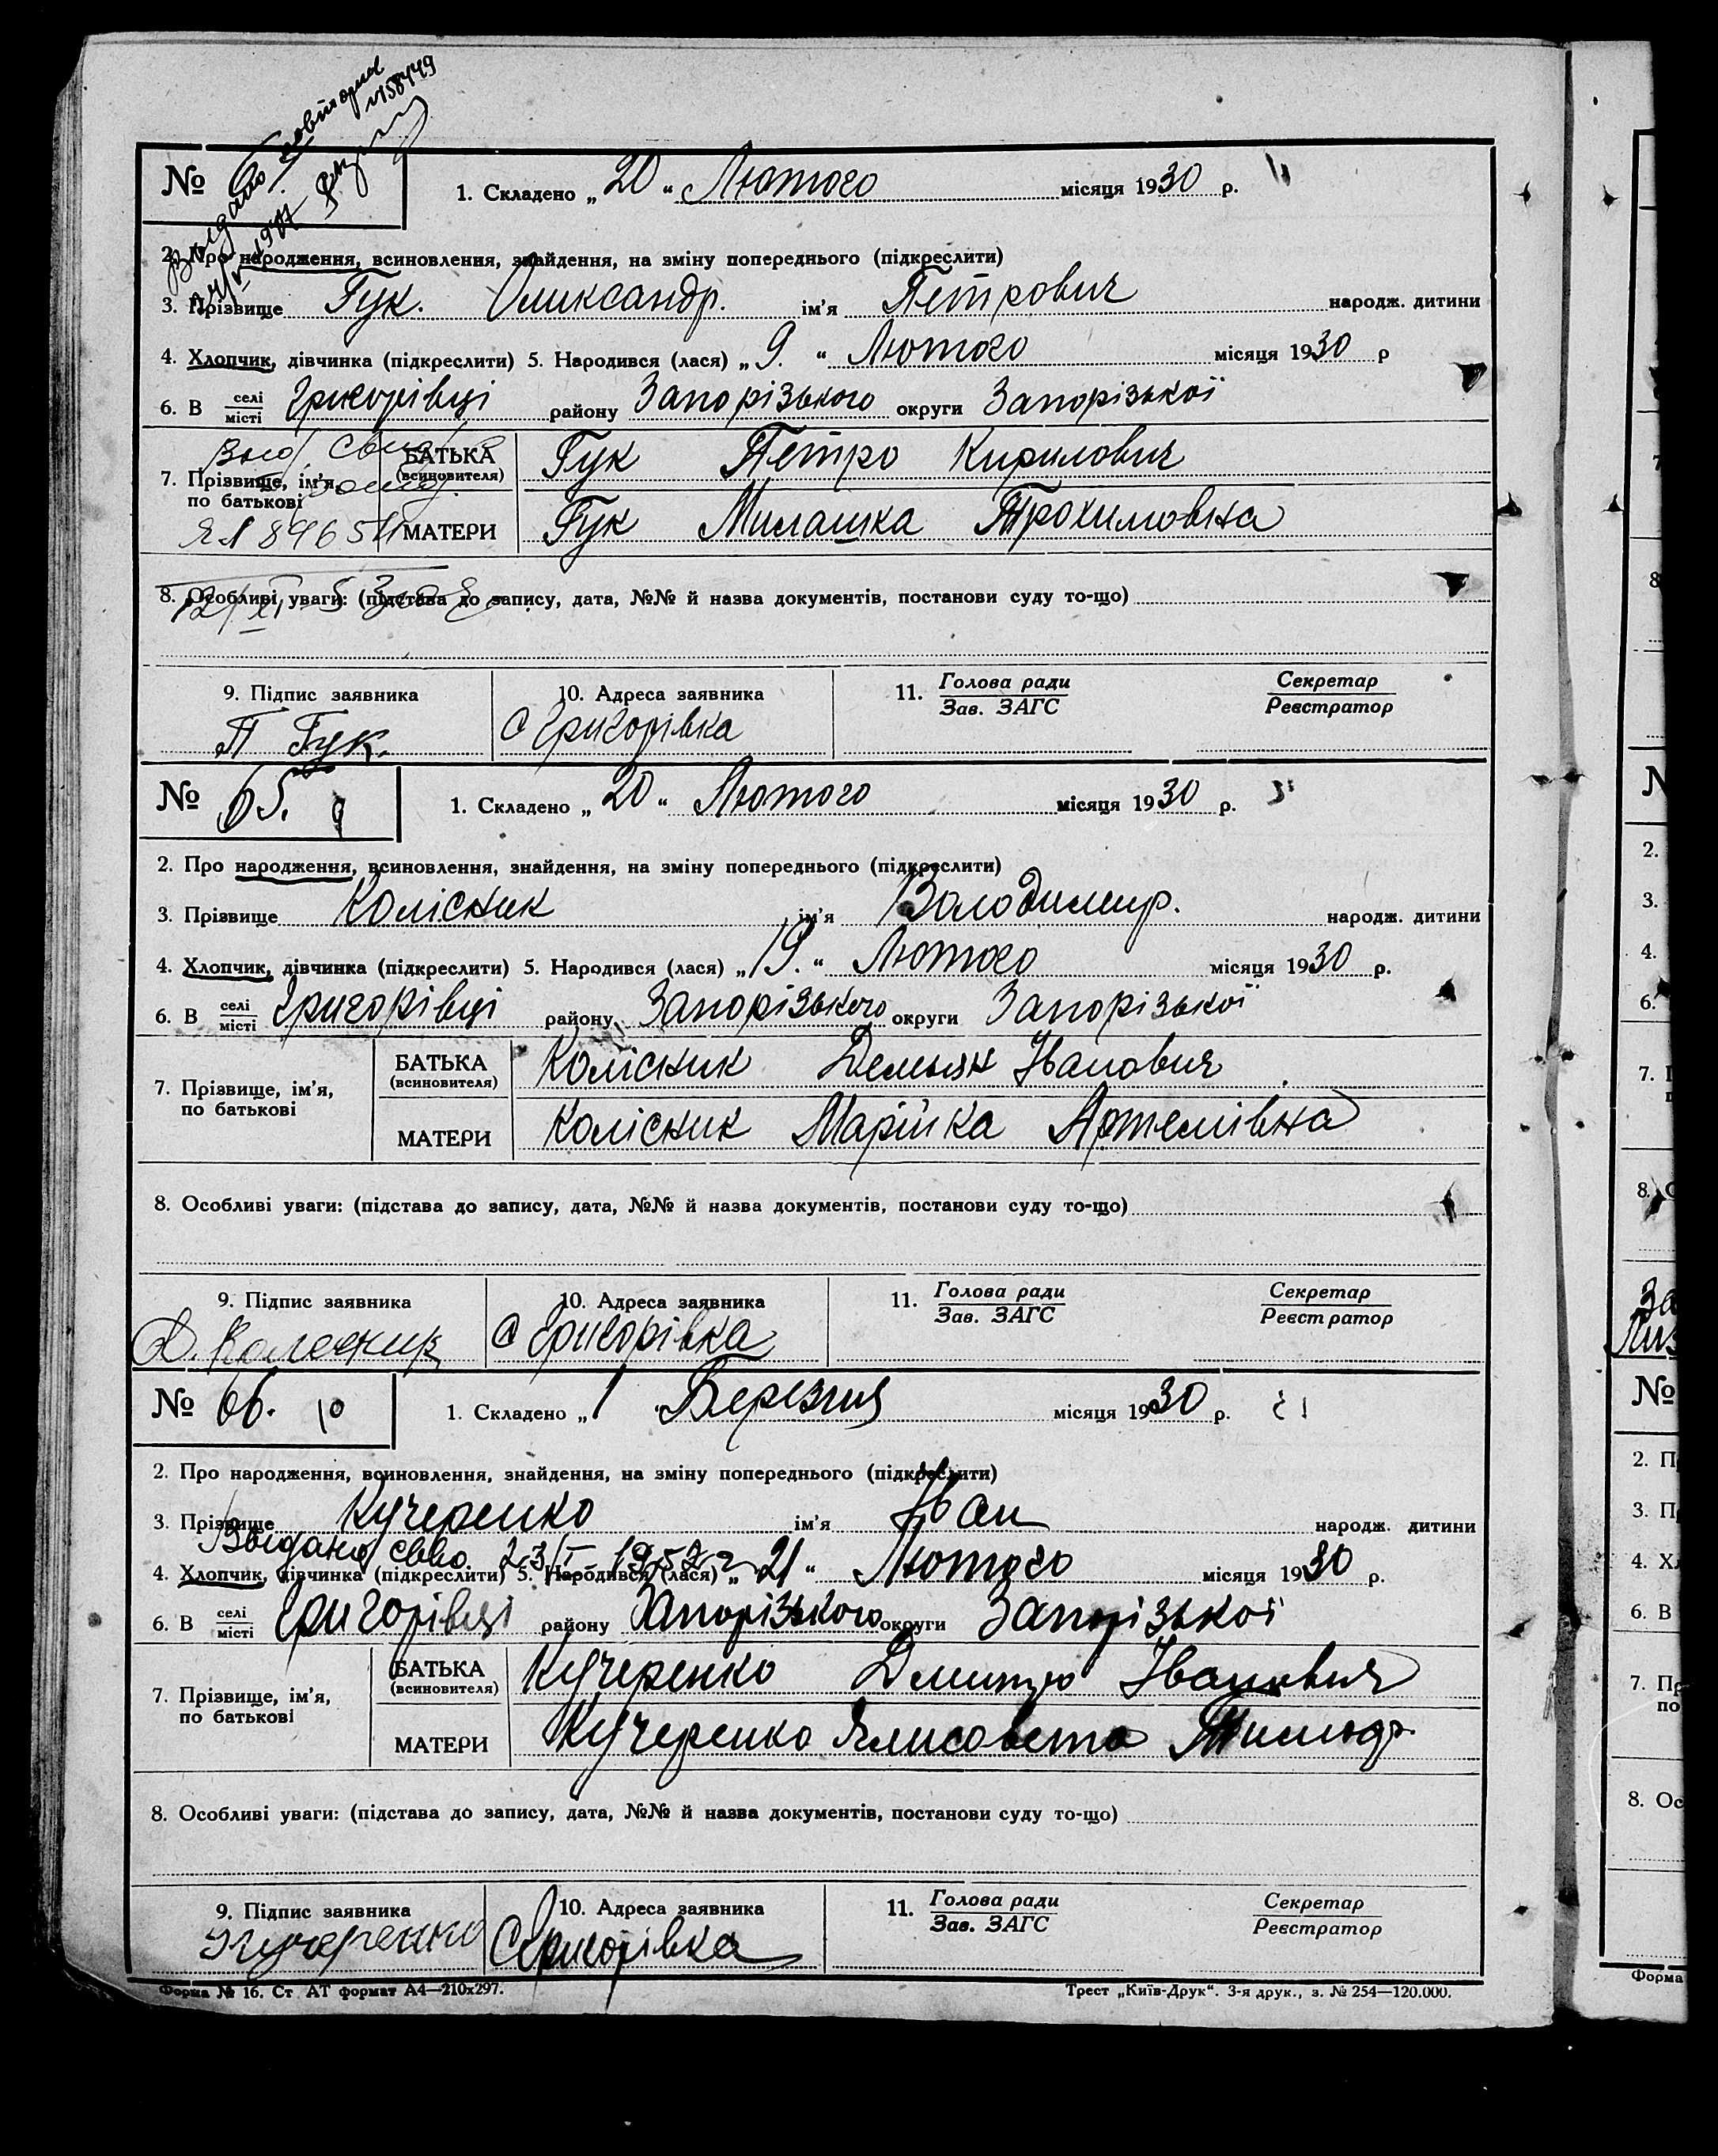 Выдано повторно
№ 158449
№
1. Складено „ 20 “ Лютого місяця 1930 р.
2. Про народження, всиновлення, знайдення, на зміну попереднього (підкреслити)
3. Прізвище Гук. Олександр. ім'я Петрович народж. дитини
4. Хлопчик, дівчинка (підкреслити) 5. Народився (лася) „ 9. “ Лютого місяця 1930 р
6. В селі місті Григорівці району Запорізького округи Запорізької
7. Прізвище, ім'я, по батькові
БАТЬКА (всиновителя) Гук Петро Кирилович
МАТЕРИ Гук Милашка Трохимовна
8. Особливі уваги: (підстава до запису, дата, №№ й назва документів, постанови суду то-що)
9. Підпис заявника 10. Адреса заявника 11. Голова ради Зав. ЗАГС Секретар Реєстратор
П Гук. С Григорівка
№ 65. 9
1. Складено „ 20 “ Лютого місяця 1930 р.
2. Про народження, всиновлення, знайдення, на зміну попереднього (підкреслити)
3. Прізвище Колісник ім'я Володимир. народж. дитини
4. Хлопчик, дівчинка (підкреслити) 5. Народився (лася) „ 19. “ Лютого місяця 1930 р.
6. В селі місті Григорівці району Запорізького округи Запорізької
7. Прізвище, ім'я, по батькові
БАТЬКА (всиновителя) Колісник Демьян Іванович
МАТЕРИ Колісник Марійка Артемівна
8. Особливі уваги: (підстава до запису, дата, №№ й назва документів, постанови суду то-що)
9. Підпис заявника 10. Адреса заявника 11. Голова ради Зав. ЗАГС Секретар Реєстратор
Д. Колесник С Григорівка
№ 66. 10
1. Складено „ 1 “ Березня місяця 1930 р.
2. Про народження, всиновлення, знайдення, на зміну попереднього (підкреслити)
3. Прізвище Кучеренко ім'я Іван народж. дитини
Выдано св-во 23/I 1957 г
4. Хлопчик, дівчинка (підкреслити) 5. Народився (лася) „ 21 “ Лютого місяця 1930 р.
6. В селі місті Григорівці району Запорізького округи Запорізької
7. Прізвище, ім'я, по батькові
БАТЬКА (всиновителя) Кучеренко Дмитро Іванович
МАТЕРИ Кучеренко Ялисовета
8. Особливі уваги: (підстава до запису, дата, №№ й назва документів, постанови суду то-що)
9. Підпис заявника 10. Адреса заявника 11. Голова ради Зав. ЗАГС Секретар Реєстратор
Кучеренко С Григорівка
Форма № 16. Ст АТ формат А4—210х297. Трест „Київ-Друк“. 3-я друк., з. № 254—120.000.